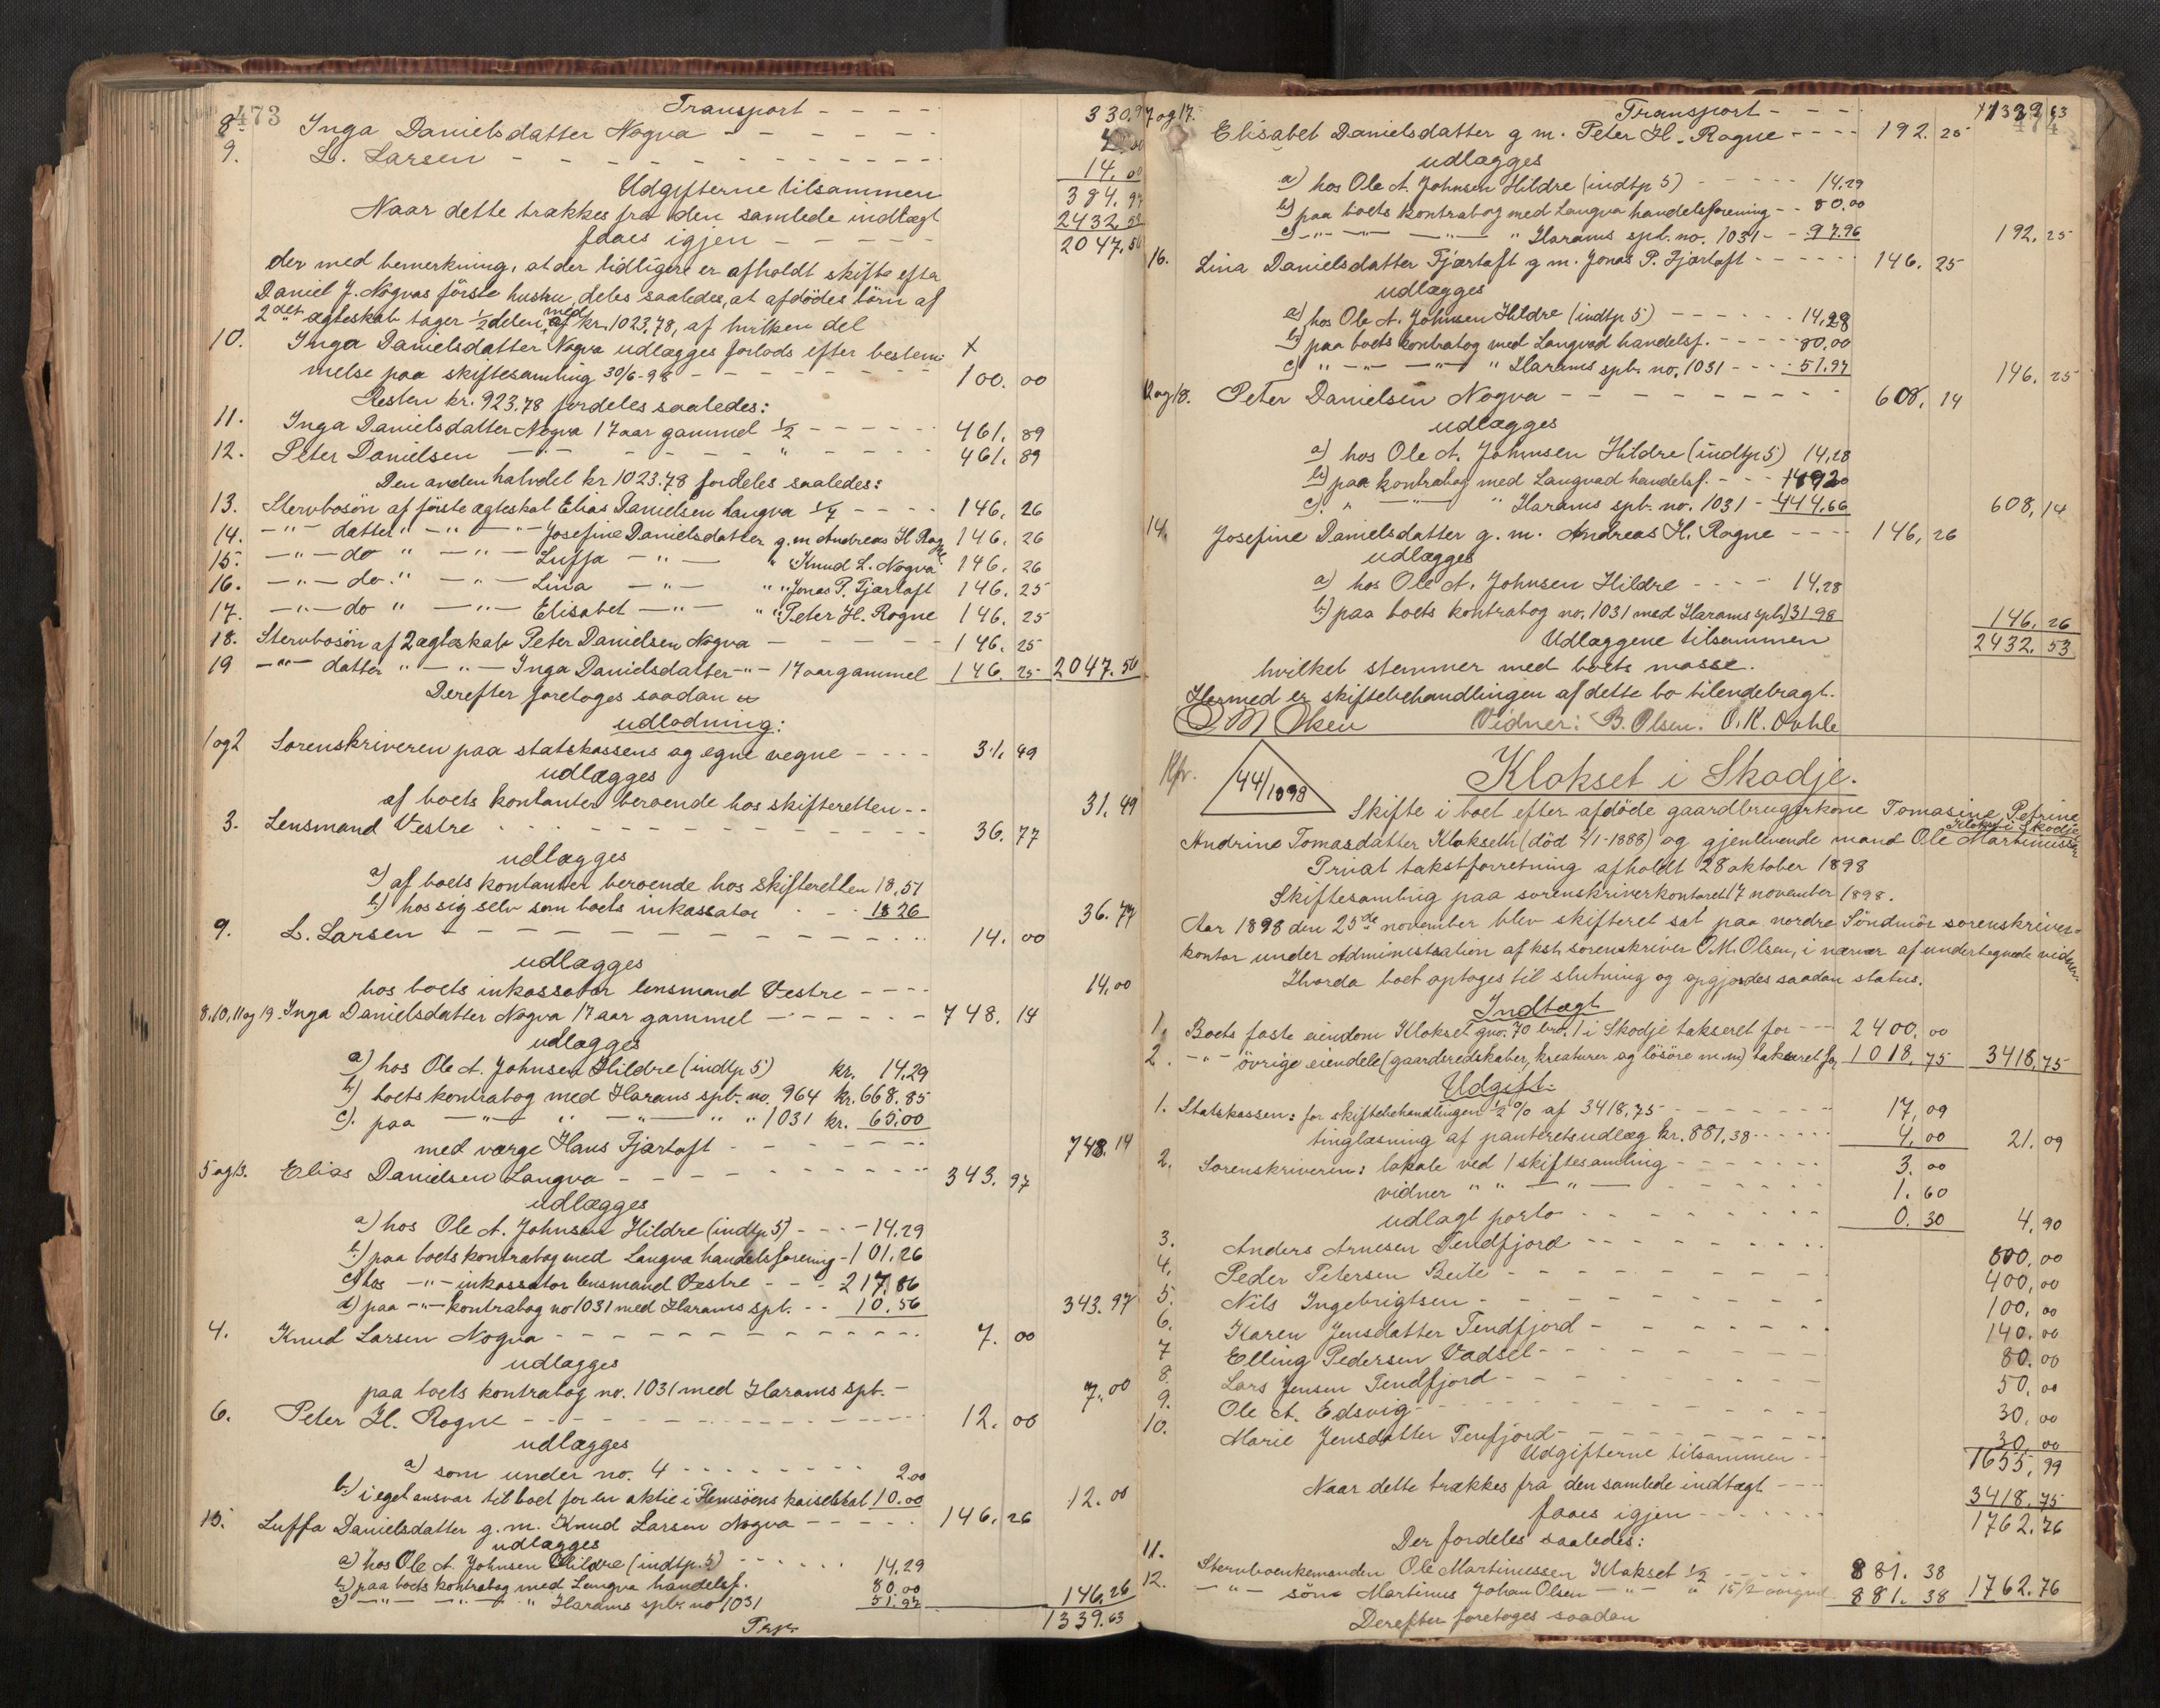 473
Transport - - - - 330.9
8. Inga Danielsdatter Nogva - - - - - -
9. L. Larsen - - - - - - - - 14.00
Udgifterne tilsammen 384.97
Naar dette trækkes fra den samlede indtægt 2432.53
faaes igjen - - - - - 2047.56
der med bemerkning, at der tidligere er afholdt skifte efter
Daniel J. Nogvas första hustru, deles saaledes, at afdödes börn af
2det ægteskab tager 1/2delen med af kr. 1023.78, af hvilken del
10. Inga Danielsdatter Nogva udlægges forlods efter bestem- X
melse paa skiftesamling 30/6-98 - - - - - - 100.00
Resten kr. 923.78 fordeles saaledes:
11. Inga Danielsdatter Nogva 17 aar gammel 1/2 - - - - - 461.89
12. Peter Danielsen -"- - - - - " - - - - 461.89
Den anden halvdel kr 1023.78 fordeles saaledes:
13. Stervbosön af förste ægteskab Elias Danielsen Langva 1/7 - - - - 146.26
14. -"- datter " -"- -"- Josefine Danielsdatter g.m. Andreas H Rogne 146.26
15. -"- do " -"- Luffa -"- " Knud L. Nogva 146.26
16. -"- do " -"- Lina -"- " " Jonas P. Fjærtoft 146.25
17. -"- do " -"- Elisabet -"- " " Peter H. Rogne 146.25
18. Stervbosön af 2 ægteskab Peter Danielsen Nogva - - - - - 146.25
19 -"- datter " -"- Inga Danielsdatter -"- 17 aar gammel 146.25 2047.56
Derefter foretoges saadan
udlodning:
1 og 2 Sorenskriveren paa statskassens og egne vegne - - - - 31.49
udlægges
af boets kontanter beroende hos skifteretten - - 31.49
3. Lensmand Vestre - - - - - - - - 36.77
udlægges
a) af boets kontanter beroende hos skifteretten 18,51
b) hos sig selv som boets inkassator - - 18 26 36.77
9. L. Larsen - - - - - - - - 14.00
udlægges
hos boets inkassator lensmand Vestre - - - - 14,00
8,10,11 og 19. Inga Danielsdatter Nogva 17 aar gammel - - - - - - 748.14
udlægges
a) hos Ole A. Johnsen Hildre (indtp 5) kr. 14,29
b) boets kontrabog med Harams spb. no. 964 kr. 668.85
c). paa -"- " -"- " " 1031 kr. 65,00
med værge Hans Fjærtoft - - - - - - 748.14
5 og 13. Elias Danielsen Langva - - - - - - - - 343.97
udlægges
a) hos Ole A. Johnsen Hildre (indtp 5) - - - 14,29
b) paa boets kontrabog med Langva handelsforening - 101,26
c) hos -"- inkassator lensmand Vestre - - - 217,86
d) paa -"- kontrabog no 1031 med Harams spb. - - 10.56 343.97
4. Knud Larsen Nogva - - - - - - - - 7.00
udlægges
paa boets kontrabog no. 1031 med Harams spb. - 7.00
6. Peter H. Rogne - - - - - - - - 12.00
udlægges
a) som under no. 4 - - - - - - - 2.00
b) i eget ansvar til boet for en aktie i 10.00 12.00
15. Luffa Danielsdatter g.m. Knud Larsen Nogva - - - - - 146.26
udlægges
a) hos Ole A. Johnsen Hildre (indtp. 5) - - - - 14,29
b) paa boets kontrabog med Langva handelsf. 80,00
c) -"- -"- " Harams spb. no 1031 51.97 146,26
1339.63
474
Transport - - - 1339 63
7 og 17. Elisabet Danielsdatter g m. Peter H. Rogne - - - - 192.25
udlægges
a) hos Ole A. Johnsen Hildre (indtp 5) - - - - - 14.29
b) paa boets kontrabog med Langva handelsforening - - 80.00
c) -"- -"- " Harams spb. no. 1031 - - 97.96 192.25
16. Lina Danielsdatter Fjærtoft g m. Jonas P. Fjærtoft - - - - - 146.25
udlægges
a) hos Ole A. Johnsen Hildre (indtp 5) - - - - - - 14,28
b) paa boets kontrabog med Langvad handelsf. - - - - - 80,00
c) " -"- -"- " Harams spb. no. 1031 - - - - 51.97 146.25
12 og 18. Peter Danielsen Nogva - - - - - - - - 608.14
udlægges
a) hos Ole A. Johnsen Hildre (indtp 5) 14,28
b) paa kontrabog med Langvad handelsf. - - - 14920
c). " -"- " Harams spb. no. 1031 - 444,66 608,14
14. Josefine Danielsdatter g. m. Andreas H. Rogne - - - - 146,26
udlægges
a) hos Ole A. Johnsen Hildre - - - - 14,28
b) paa boets kontrabog no. 1031 med Harams spb. 131.98 146.26
Udlæggene tilsammen 2432.53
hvilket stemmer med boets masse.
Hermed er skiftebehandlingen af dette bo tilendebragt.
O M Olsen Vidner: B. Olsen. O. K. Ovhle
44/1898
Klokset i Skodje.
Skifte i boet efter afdöde gaardbrugerkone Tomasine Petrine
Andrine Tomasdatter Klokseth (död 2/1-1888) og gjenlevende mand Ole Martinussen Klokset i Skodje
Privat takstforretning afholdt 28 oktober 1898
Skiftesamling paa sorenskriverkontoret 17 november 1898.
Aar 1898 den 25de november blev skifteret sat paa nordre Söndmör sorenskriver-
kontor under administration af kst. sorenskriver O.M. Olsen, i nærvær af undertegnede vidner.
Hvorda boet optoges til slutning og opgjordes saadan status.
Indtægt
1. Boets faste eiendom Klokset gno. 70 bno. 1 i Skodje takseret for - - - 2400.00
2. -"- övrige eiendele (gaardsredskaber, kreaturer og lösöre m.m) takseret for 1018.75 3418,75
Udgift:
1. Statskassen: for skiftebehandlingen 1/2 % af 3418,75 - - - - - - 17,09
tinglæsning af panteretsudlæg kr. 881,38 - - - - - 4,00 21.09
2. Sorenskriveren: lokale ved 1 skiftesamling - - - - - - 3.00
vidner " " -"- - - - - - - 1.60
udlagt porto - - - - - - - - 0.30 4,90
3. Anders Arnesen Tendfjord - - - - - - - - 800,00
4. Peder Petersen Beite - - - - - - - - 400,00
5. Nils Ingebrigtsen - - - - - - - - 100,00
6. Karen Jensdatter Tendfjord - - - - - - - 140,00
7 Elling Pedersen Vadset - - - - - - - - 80.00
8. Lars Jensen Tendfjord - - - - - - - - 50,00
9. Ole A. Edsvig - - - - - - - - 30,00
10. Marie Jensdatter Tenfjord - - - - - - - 30,00
Udgifterne tilsammen - - 1655,99
Naar dette trækkes fra den samlede indtægt - - - - 3418,75
faaes igjen - - - - - - - 1762.76
Der fordeles saaledes:
11. Stervboenkemanden Ole Martinussen Klokset 1/2 - - - - - 881.38
12. -"- sön Martinus Johan Olsen -"- " 15 1/2 aar gml 881.38 1762.76
Derefter foretoges saadan